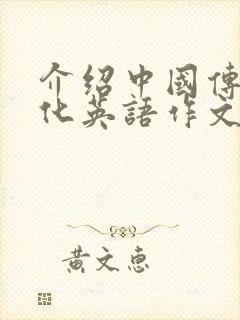 介绍中國傳
化英語作文
黄文惠